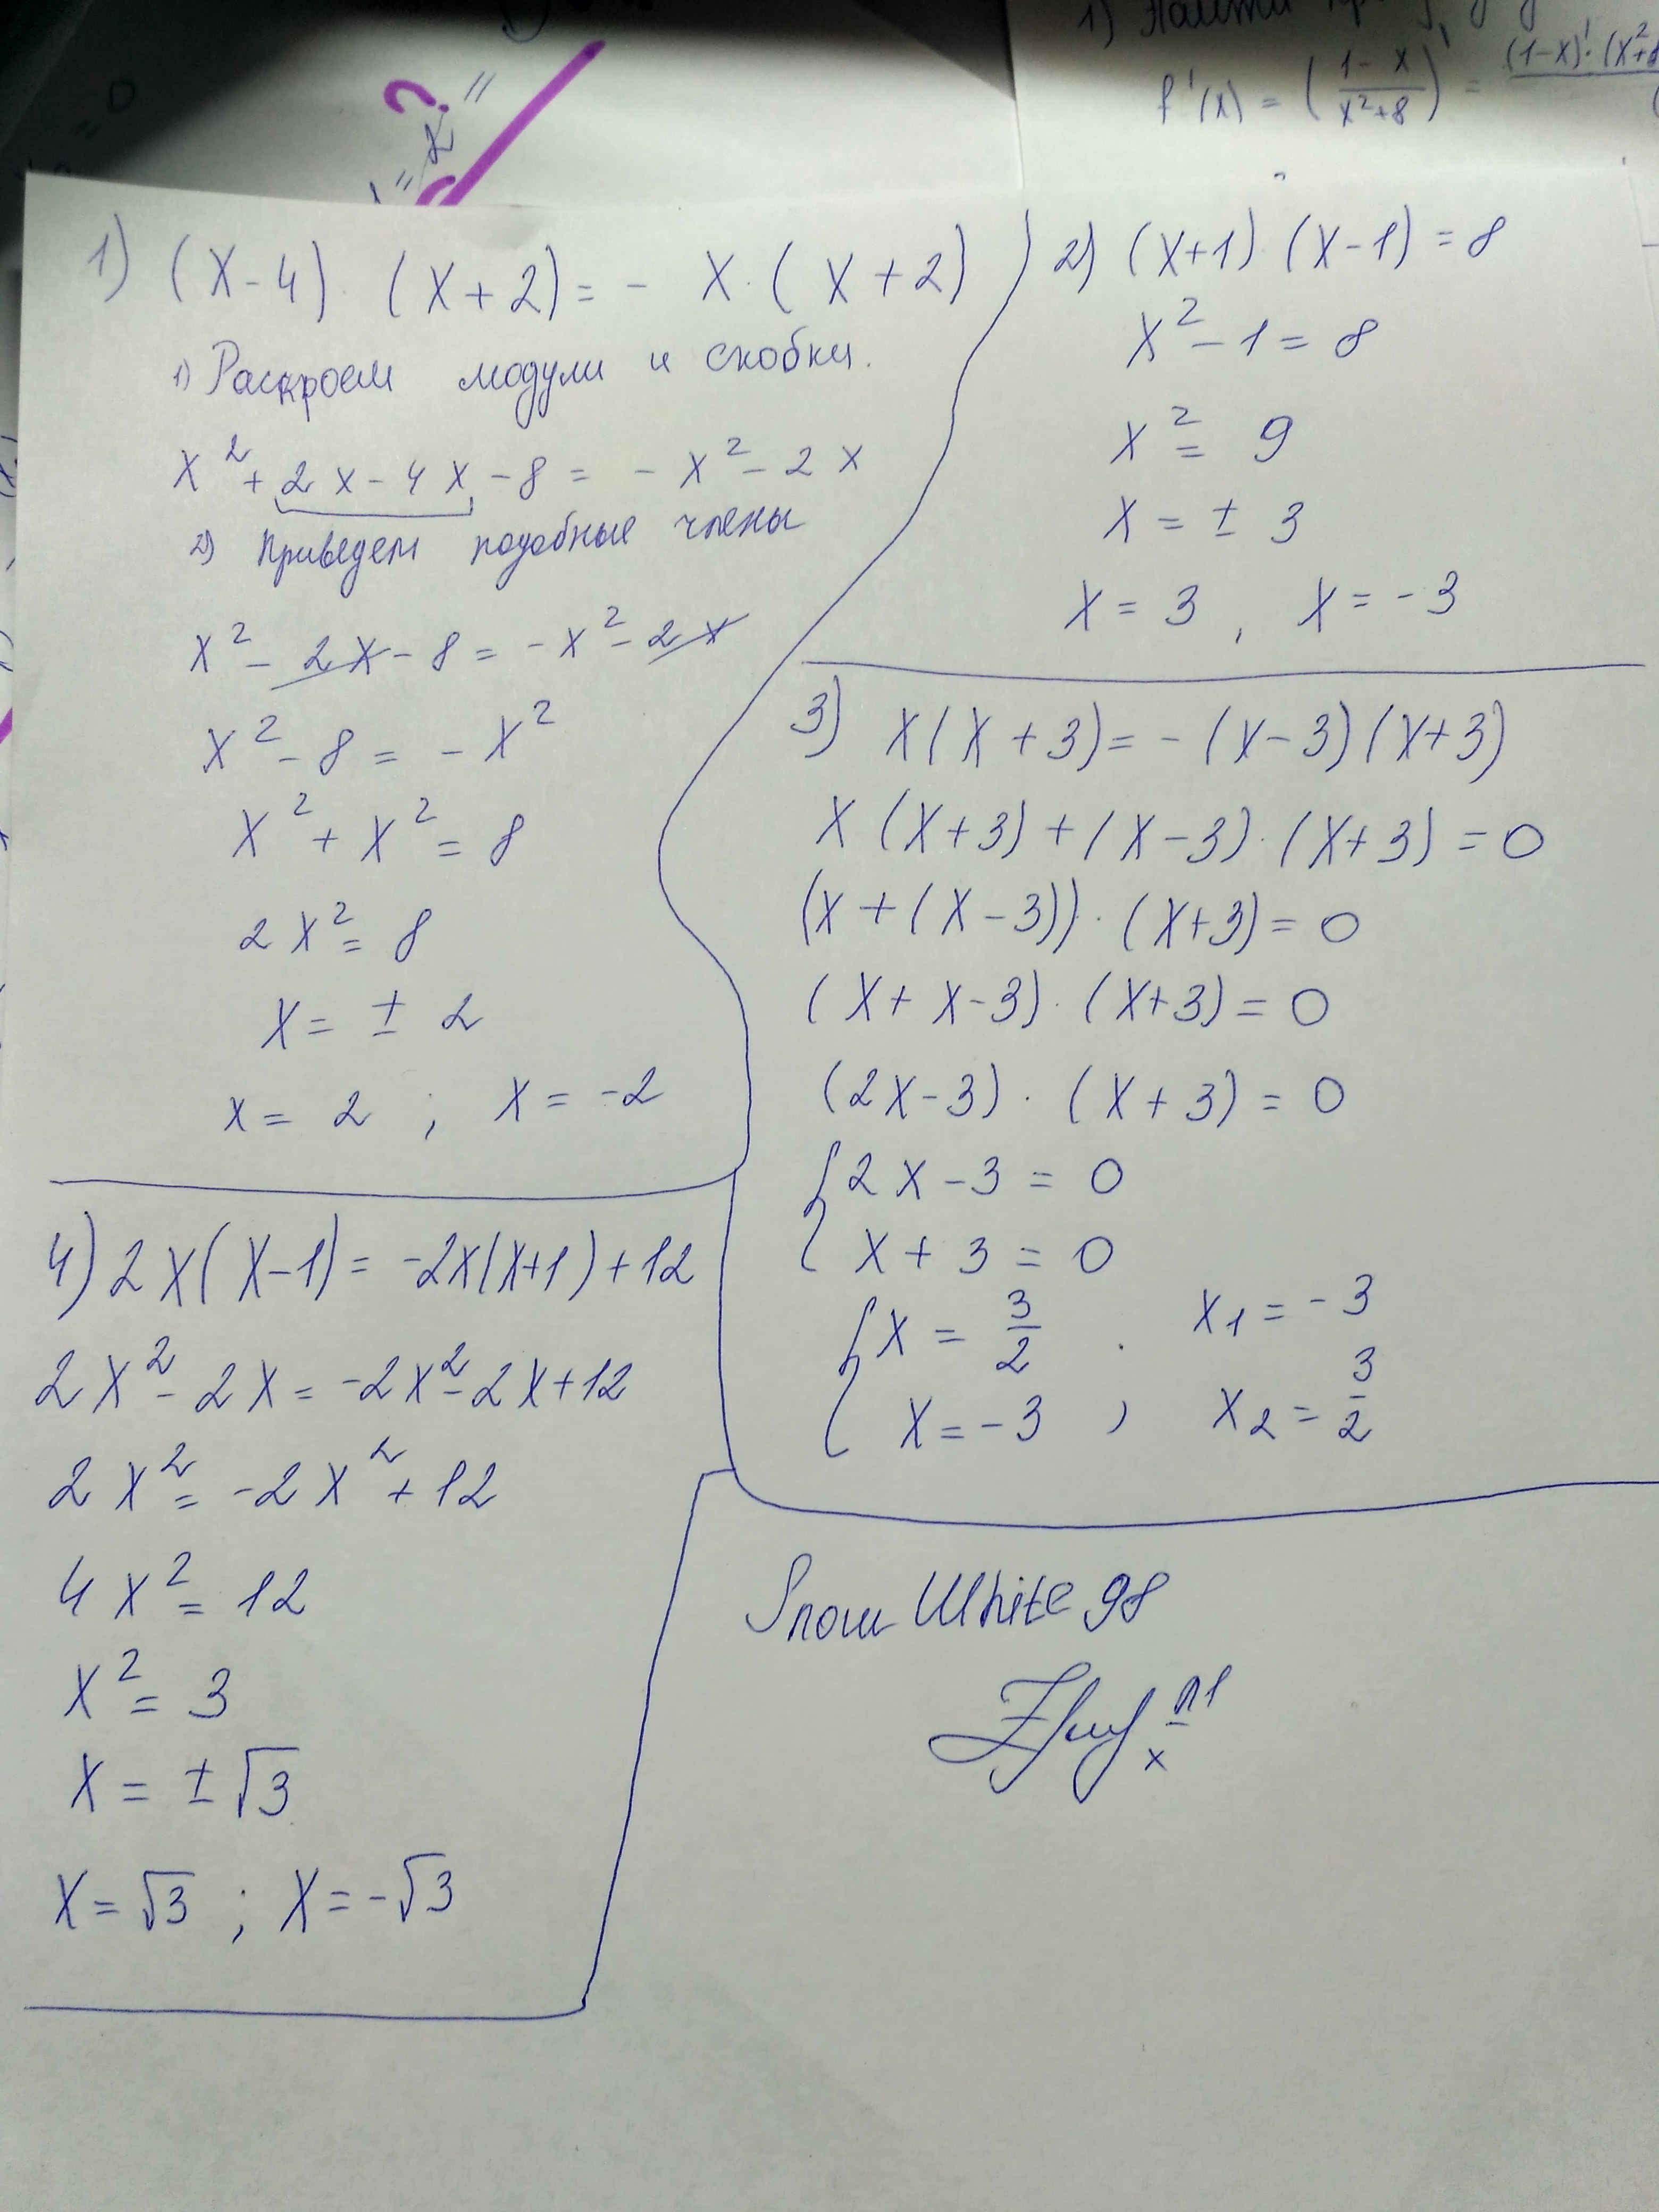 1) Найти
f'(x) = ( 1-x / x²+8 )' = (1-x)'·(x²+8
1) (x-4)·(x+2) = - x·(x+2)
1) Раскроем модули и скобки.
x² + 2x - 4x - 8 = - x² - 2x
2) Приведем подобные члены
x² - 2x - 8 = -x² - 2x
x² - 8 = - x²
x² + x² = 8
2x² = 8
x = ± 2
x = 2 ; x = -2
2) (x+1)·(x-1) = 8
x² - 1 = 8
x² = 9
x = ± 3
x = 3 , x = -3
3) x(x+3) = - (x-3)(x+3)
x(x+3) + (x-3)·(x+3) = 0
(x + (x-3))·(x+3) = 0
(x + x-3)·(x+3) = 0
(2x-3)·(x+3) = 0
{ 2x - 3 = 0
x + 3 = 0
{ x = 3/2 . x₁ = -3
x = -3 , x₂ = 3/2
4) 2x(x-1) = -2x(x+1)+12
2x² - 2x = -2x² - 2x + 12
2x² = -2x² + 12
4x² = 12
x² = 3
x = ± √3
x = √3 ; x = -√3
Snow White 98